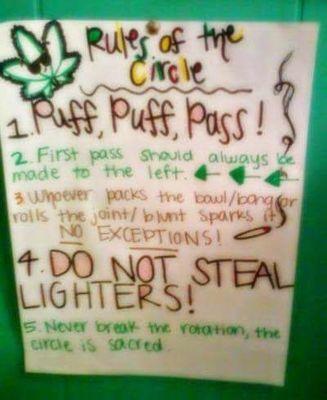 Rules of the
Circle
1. Puff, Puff, Pass!
2. First pass should always be
made to the left.
3. Whoever packs the bowl/bong or
rolls the joint/blunt sparks it
NO EXCEPTIONS!
4. DO NOT STEAL
LIGHTERS!
5. Never break the rotation, the
circle is sacred.